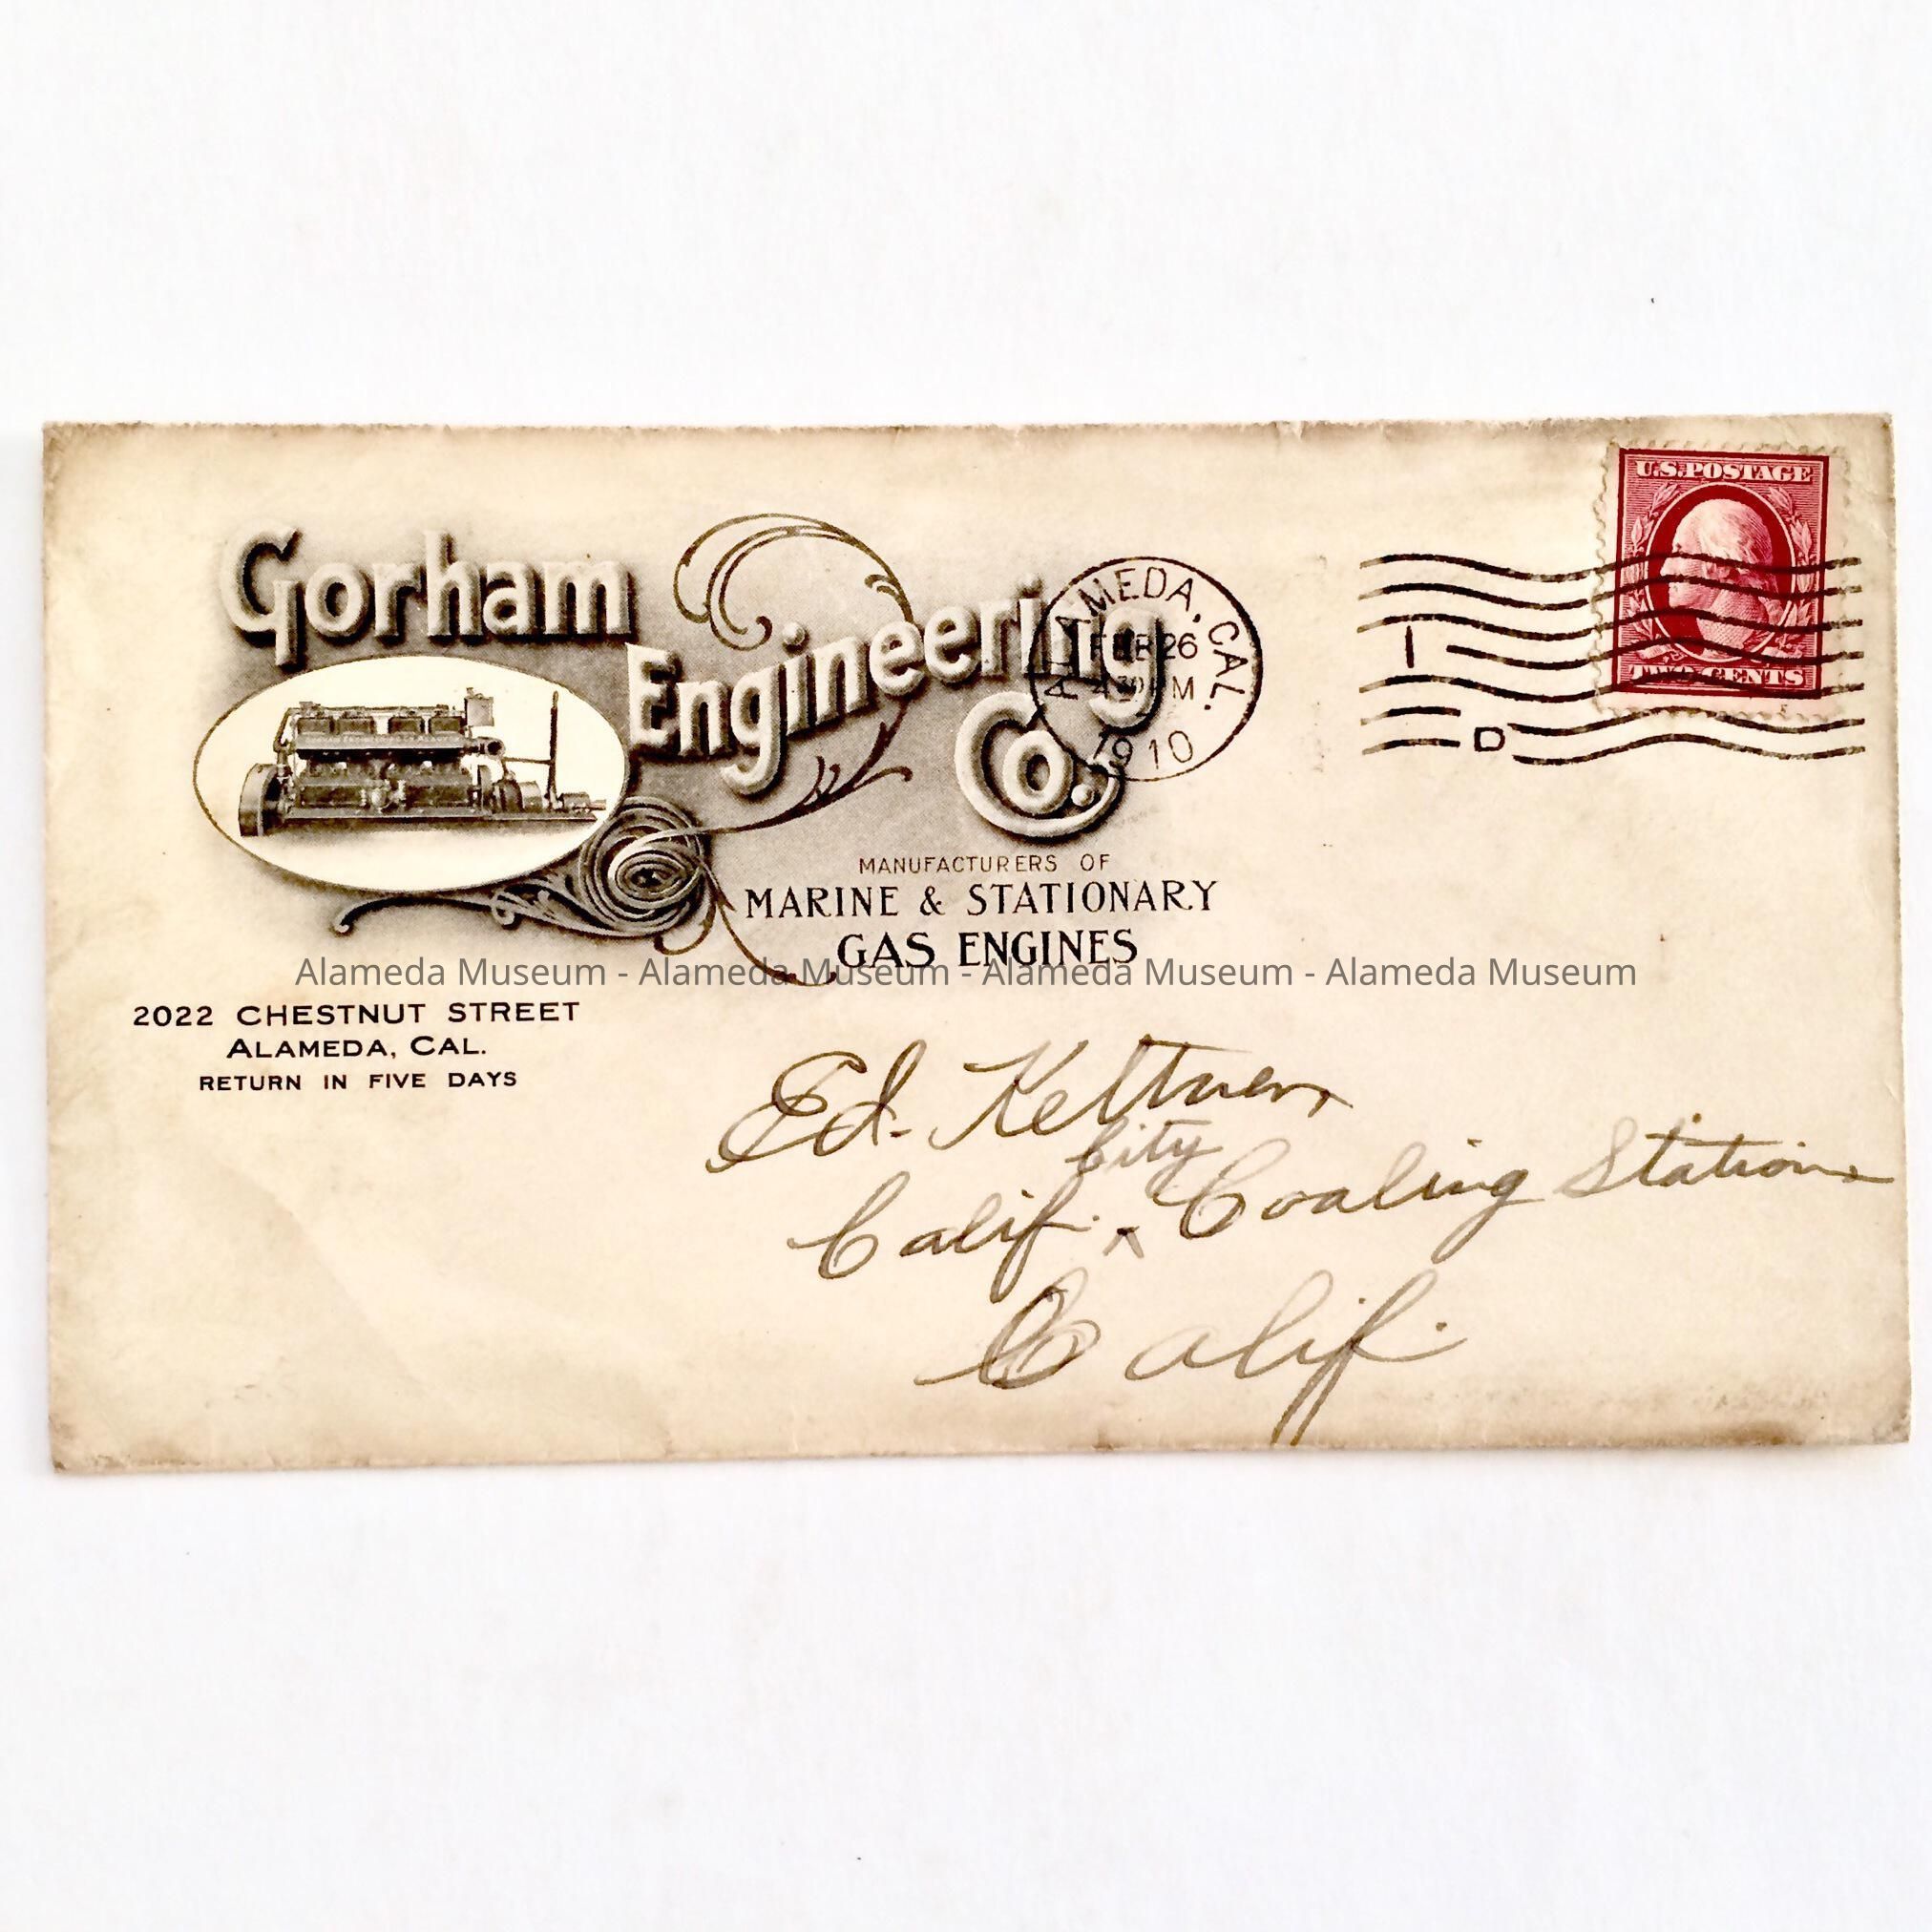 Gorham
Engineering
Co.
MANUFACTURERS OF
MARINE & STATIONARY
GAS ENGINES
2022 CHESTNUT STREET
ALAMEDA, CAL.
RETURN IN FIVE DAYS
ALAMEDA, CAL.
FEB 26
M
1910
1
D
U.S. POSTAGE
TWO CENTS
Alameda Museum - Alameda Museum - Alameda Museum - Alameda Museum
Ed. Kettner,
City
Calif. ^ Coaling Station
Calif.